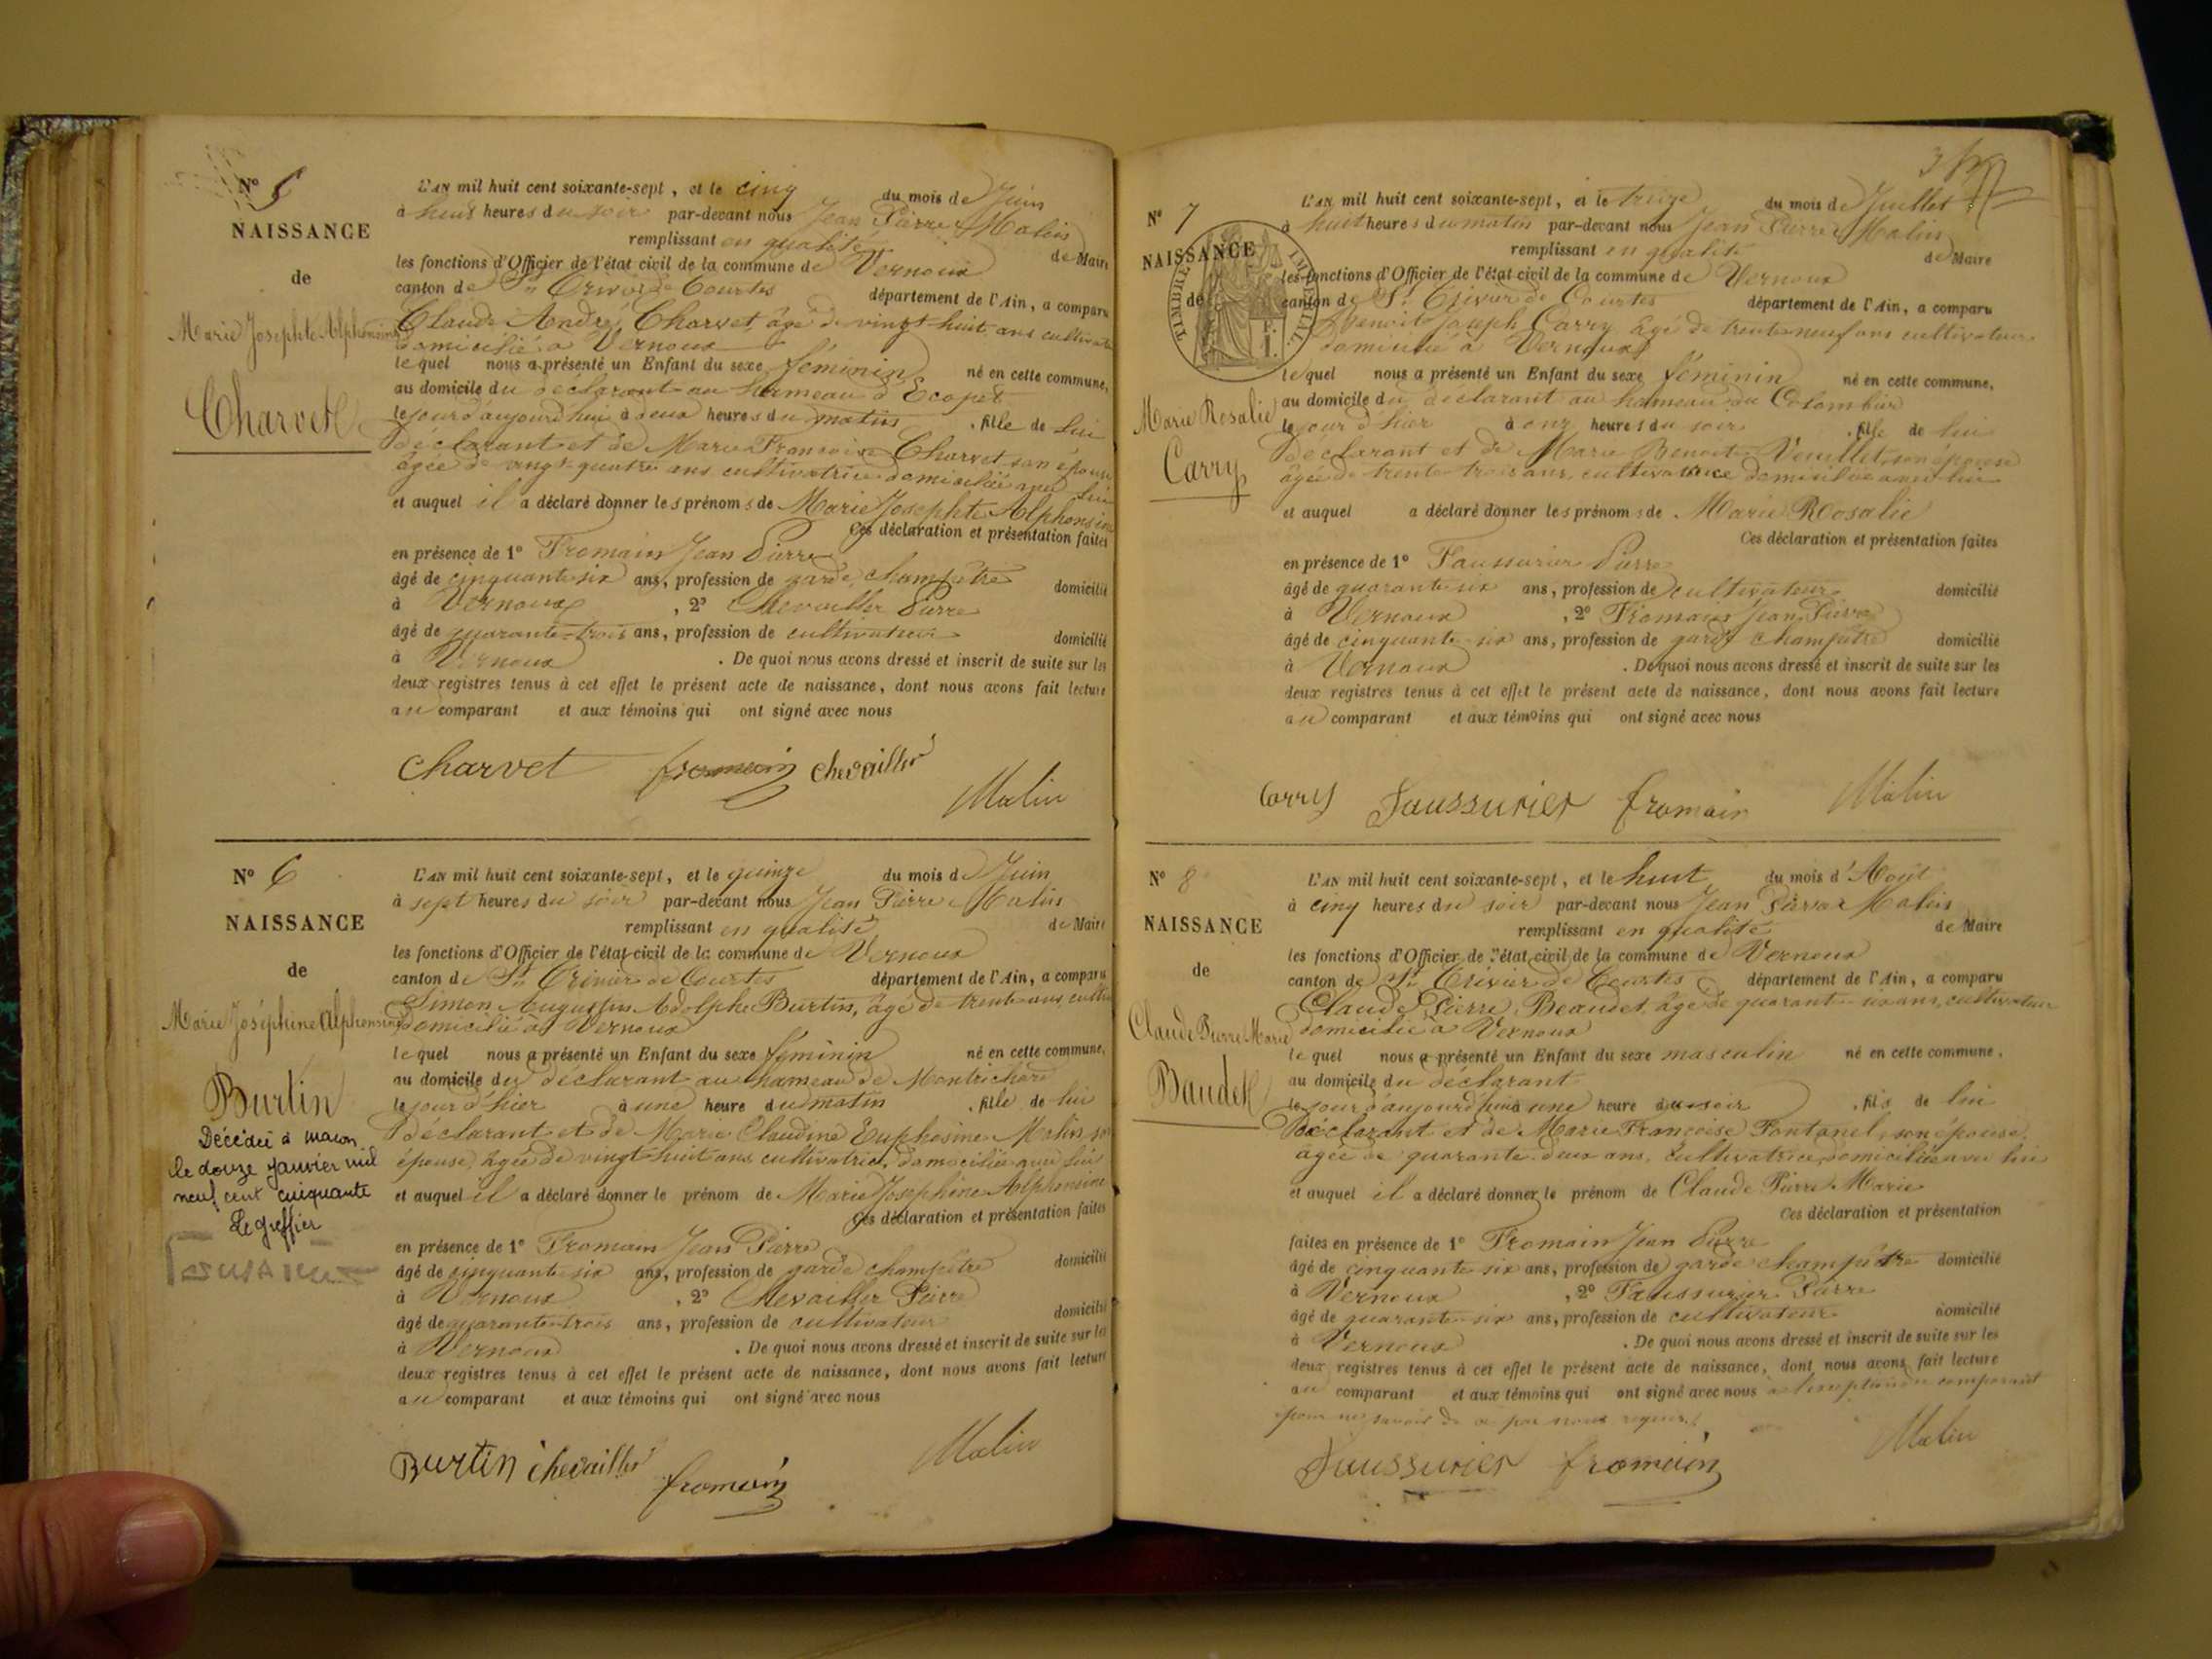 N° 5
NAISSANCE
de
Marie Josephte Alphonsine
Charvet
L'AN mil huit cent soixante-sept, et le cinq du mois de Juin
à huit heures du soir par-devant nous Jean Pierre Malin
remplissant en qualité de Maire
les fonctions d'Officier de l'état civil de la commune de Vernoux
canton de St Trivier de Courtes département de l'Ain, a comparu
Claude André Charvet âgé de vingt huit ans cultivateur
domicilié à Vernoux
lequel nous a présenté un Enfant du sexe féminin né en cette commune,
au domicile du déclarant au hameau d'Ecopet
le jour d'aujourd'hui à deux heures du matin, fille de lui
déclarant et de Marie Françoise Charvet son épouse
âgée de vingt quatre ans cultivatrice domiciliée avec lui
et auquel il a déclaré donner les prénoms de Marie Josephte Alphonsine
Ces déclaration et présentation faites
en présence de 1° Fromain Jean Pierre
âgé de cinquante six ans, profession de garde champêtre domicilié
à Vernoux, 2° Chevailler Pierre
âgé de quarante-trois ans, profession de cultivateur domicilié
à Vernoux. De quoi nous avons dressé et inscrit de suite sur les
deux registres tenus à cet effet le présent acte de naissance, dont nous avons fait lecture
au comparant et aux témoins qui ont signé avec nous
Charvet fromain chevailler
Malin
N° 6
NAISSANCE
de
Marie Joséphine Alphonsine
Burtin
Décédée à Macon
le douze Janvier mil
neuf cent cinquante
Le greffier
L'AN mil huit cent soixante-sept, et le quinze du mois de Juin
à sept heures du soir par-devant nous Jean Pierre Malin
remplissant en qualité de Maire
les fonctions d'Officier de l'état civil de la commune de Vernoux
canton de St Trivier de Courtes département de l'Ain, a comparu
Simon Augustin Adolphe Burtin, âgé de trente ans, cultiv
domicilié à Vernoux
lequel nous a présenté un Enfant du sexe féminin né en cette commune,
au domicile du déclarant au hameau de Montrichard
le jour d'hier à une heure du matin, fille de lui
déclarant et de Marie Claudine Euphosine Malin, son
épouse, âgée de vingt huit ans cultivatrice, domiciliée avec lui
et auquel il a déclaré donner le prénom de Marie Josephine Alphonsine
Ces déclaration et présentation faites
en présence de 1° Fromain Jean Pierre
âgé de cinquante six ans, profession de garde champêtre domicilié
à Vernoux, 2° Chevailler Pierre
âgé de quarante-trois ans, profession de cultivateur domicilié
à Vernoux. De quoi nous avons dressé et inscrit de suite sur les
deux registres tenus à cet effet le présent acte de naissance, dont nous avons fait lecture
au comparant et aux témoins qui ont signé avec nous
Burtin chevailler fromain Malin
N° 7
NAISSANCE
de
TIMBRE IMPERIAL
Marie Rosalie
Carry
L'AN mil huit cent soixante-sept, et le treize du mois de Juillet
à huit heures du matin par-devant nous Jean Pierre Malin
remplissant en qualité de Maire
les fonctions d'Officier de l'état civil de la commune de Vernoux
canton de St Trivier de Courtes département de l'Ain, a comparu
Benoit Joseph Carry âgé de trente neuf ans cultivateur
domicilié à Vernoux
lequel nous a présenté un Enfant du sexe féminin né en cette commune,
au domicile du déclarant au hameau du Colombier
le jour d'hier à onze heures du soir, fille de lui
déclarant et de Marie Benoite Veuillet, son épouse
âgée de trente trois ans, cultivatrice domiciliée avec lui
et auquel a déclaré donner les prénoms de Marie Rosalie
Ces déclaration et présentation faites
en présence de 1° Faussurier Pierre
âgé de quarante six ans, profession de cultivateur domicilié
à Vernoux, 2° Fromain Jean Pierre
âgé de cinquante six ans, profession de garde champêtre domicilié
à Vernoux. De quoi nous avons dressé et inscrit de suite sur les
deux registres tenus à cet effet le présent acte de naissance, dont nous avons fait lecture
au comparant et aux témoins qui ont signé avec nous
Carry Faussurier fromain Malin
N° 8
NAISSANCE
de
Claude Pierre Marie
Baudet
L'AN mil huit cent soixante-sept, et le huit du mois d'Août
à cinq heures du soir par-devant nous Jean Pierre Malin
remplissant en qualité de Maire
les fonctions d'Officier de l'état civil de la commune de Vernoux
canton de St Trivier de Courtes département de l'Ain, a comparu
Claude Pierre Beaudet, âgé de quarante six ans, cultivateur
domicilié à Vernoux
lequel nous a présenté un Enfant du sexe masculin né en cette commune,
au domicile du déclarant
le jour d'aujourd'hui à une heure du soir, fils de lui
déclarant et de Marie Françoise Fontanel, son épouse,
âgée de quarante deux ans, cultivatrice, domiciliée avec lui
et auquel il a déclaré donner le prénom de Claude Pierre Marie
Ces déclaration et présentation
faites en présence de 1° Fromain Jean Pierre
âgé de cinquante six ans, profession de garde champêtre domicilié
à Vernoux, 2° Faussurier Pierre
âgé de quarante six ans, profession de cultivateur domicilié
à Vernoux. De quoi nous avons dressé et inscrit de suite sur les
deux registres tenus à cet effet le présent acte de naissance, dont nous avons fait lecture
au comparant et aux témoins qui ont signé avec nous à l'exception du comparant
pour ne savoir de ce par nous requis
Faussurier fromain Malin